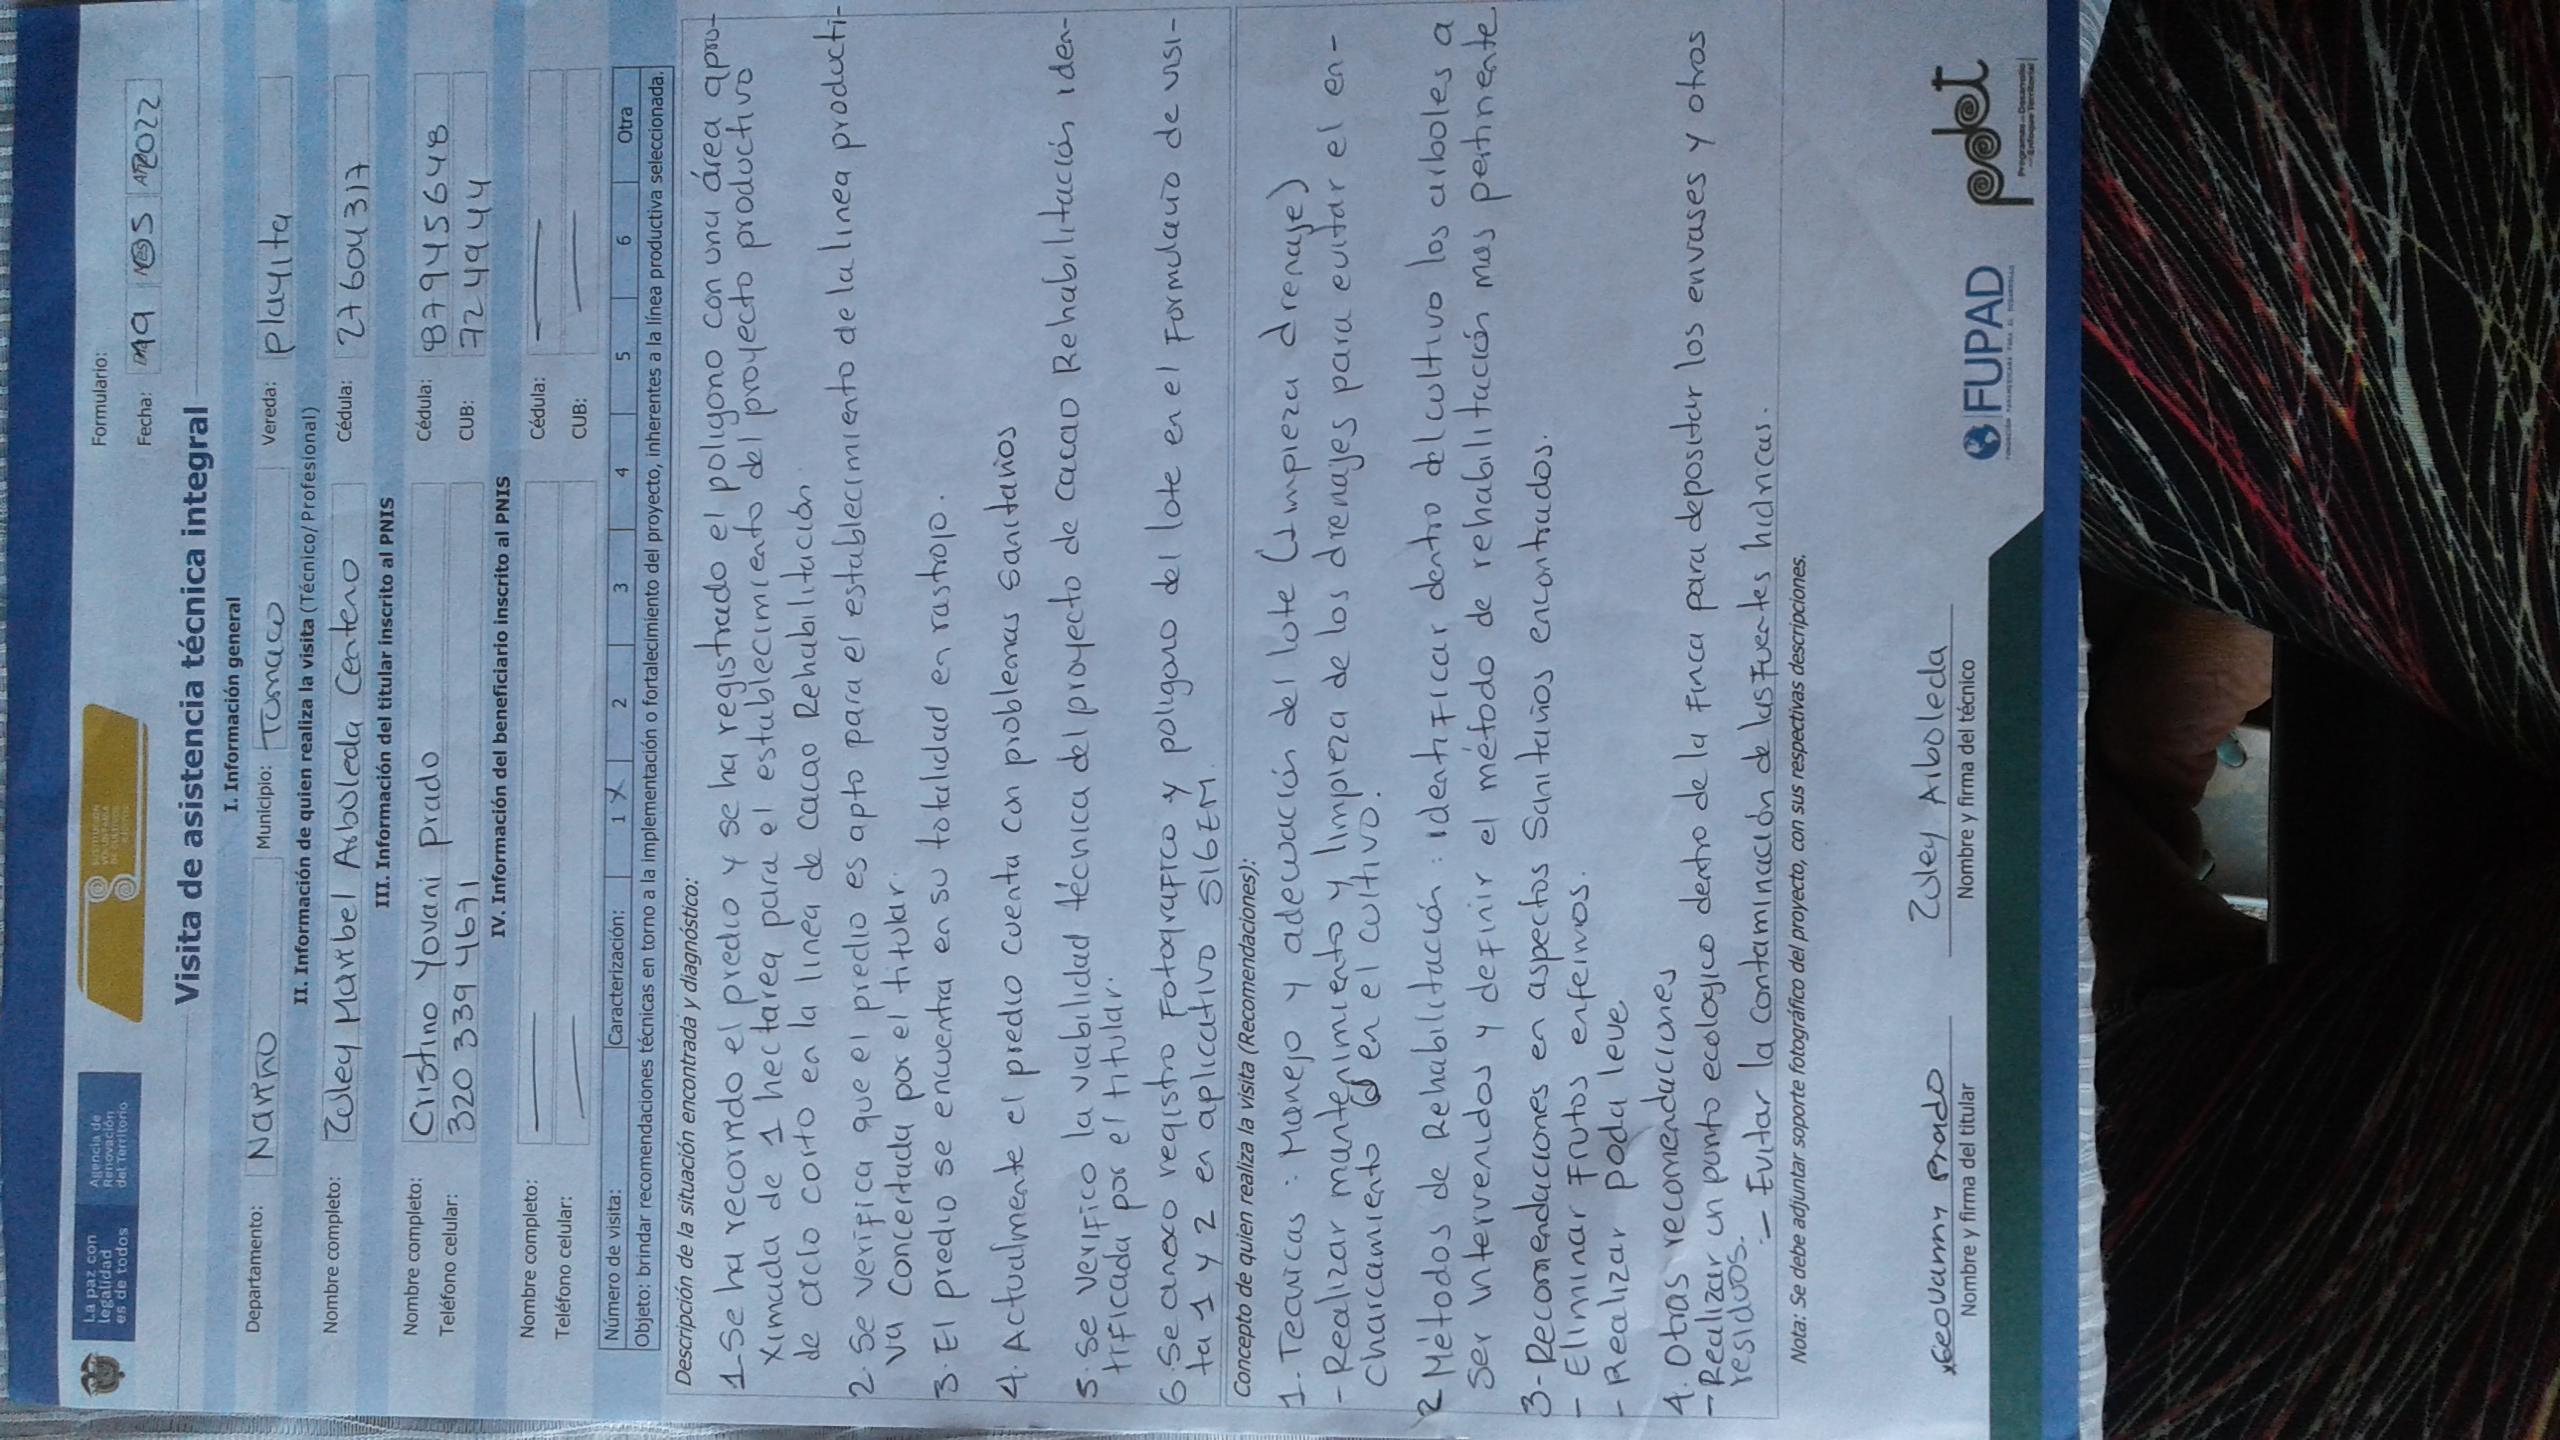 La paz con legalidad es de todos
Agencia de Renovación del Territorio
SUSTITUCIÓN VOLUNTARIA DE CULTIVOS ILÍCITOS
Formulario:
Fecha: 19 05 2022
Visita de asistencia técnica integral
I. Información general
Departamento: Nariño Municipio: Tumaco Vereda: playita
II. Información de quien realiza la visita (Técnico/Profesional)
Nombre completo: Zuley Maribel Arboleda Centeno Cédula: 27604317
III. Información del titular inscrito al PNIS
Nombre completo: Cristino Yovani prado Cédula: 87945648
Teléfono celular: 320 339 4671 CUB: 724944
IV. Información del beneficiario inscrito al PNIS
Nombre completo: — Cédula: —
Teléfono celular: — CUB: —
Número de visita: Caracterización: 1 X 2 3 4 5 6 Otra
Objeto: brindar recomendaciones técnicas en torno a la implementación o fortalecimiento del proyecto, inherentes a la línea productiva seleccionada.
Descripción de la situación encontrada y diagnóstico:
1-Se ha recorrido el predio y se ha registrado el poligono con una área apro-
ximada de 1 hectarea para el establecimiento del proyecto productivo
de ciclo corto en la linea de cacao Rehabilitación.
2. Se verifica que el predio es apto para el establecimiento de la linea producti-
va Concertada por el titular.
3. El predio se encuentra en su totalidad en rastrojo.
4. Actualmente el predio cuenta con problemas sanitarios
5. Se verifico la viabilidad técnica del proyecto de cacao Rehabilitación iden-
tificada por el titular.
6. Se anexo registro Fotografico y poligono del lote en el Formulario de visi-
ta 1 y 2 en aplicativo SIGEM.
Concepto de quien realiza la visita (Recomendaciones):
1. Tecnicas: Manejo y adecuación del lote (Limpieza drenaje)
- Realizar mantenimiento y limpieza de los drenajes para evitar el en-
charcamiento en el cultivo.
2 Métodos de Rehabilitación: identificar dentro del cultivo los arboles a
ser intervenidos y definir el método de rehabilitación mas pertinente
3-Recomendaciones en aspectos Sanitarios encontrados.
- Eliminar Frutos enfermos.
- Realizar poda leve
4. Otras recomendaciones
- Realizar un punto ecologico dentro de la Finca para depositar los envases y otros
residuos. - Evitar la contaminación de las Fuentes hidricas.
Nota: Se debe adjuntar soporte fotográfico del proyecto, con sus respectivas descripciones.
xGeovanny prado
Nombre y firma del titular
Zuley Arboleda
Nombre y firma del técnico
FUPAD
FUNDACIÓN PANAMERICANA PARA EL DESARROLLO
pdet
Programas de Desarrollo con Enfoque Territorial